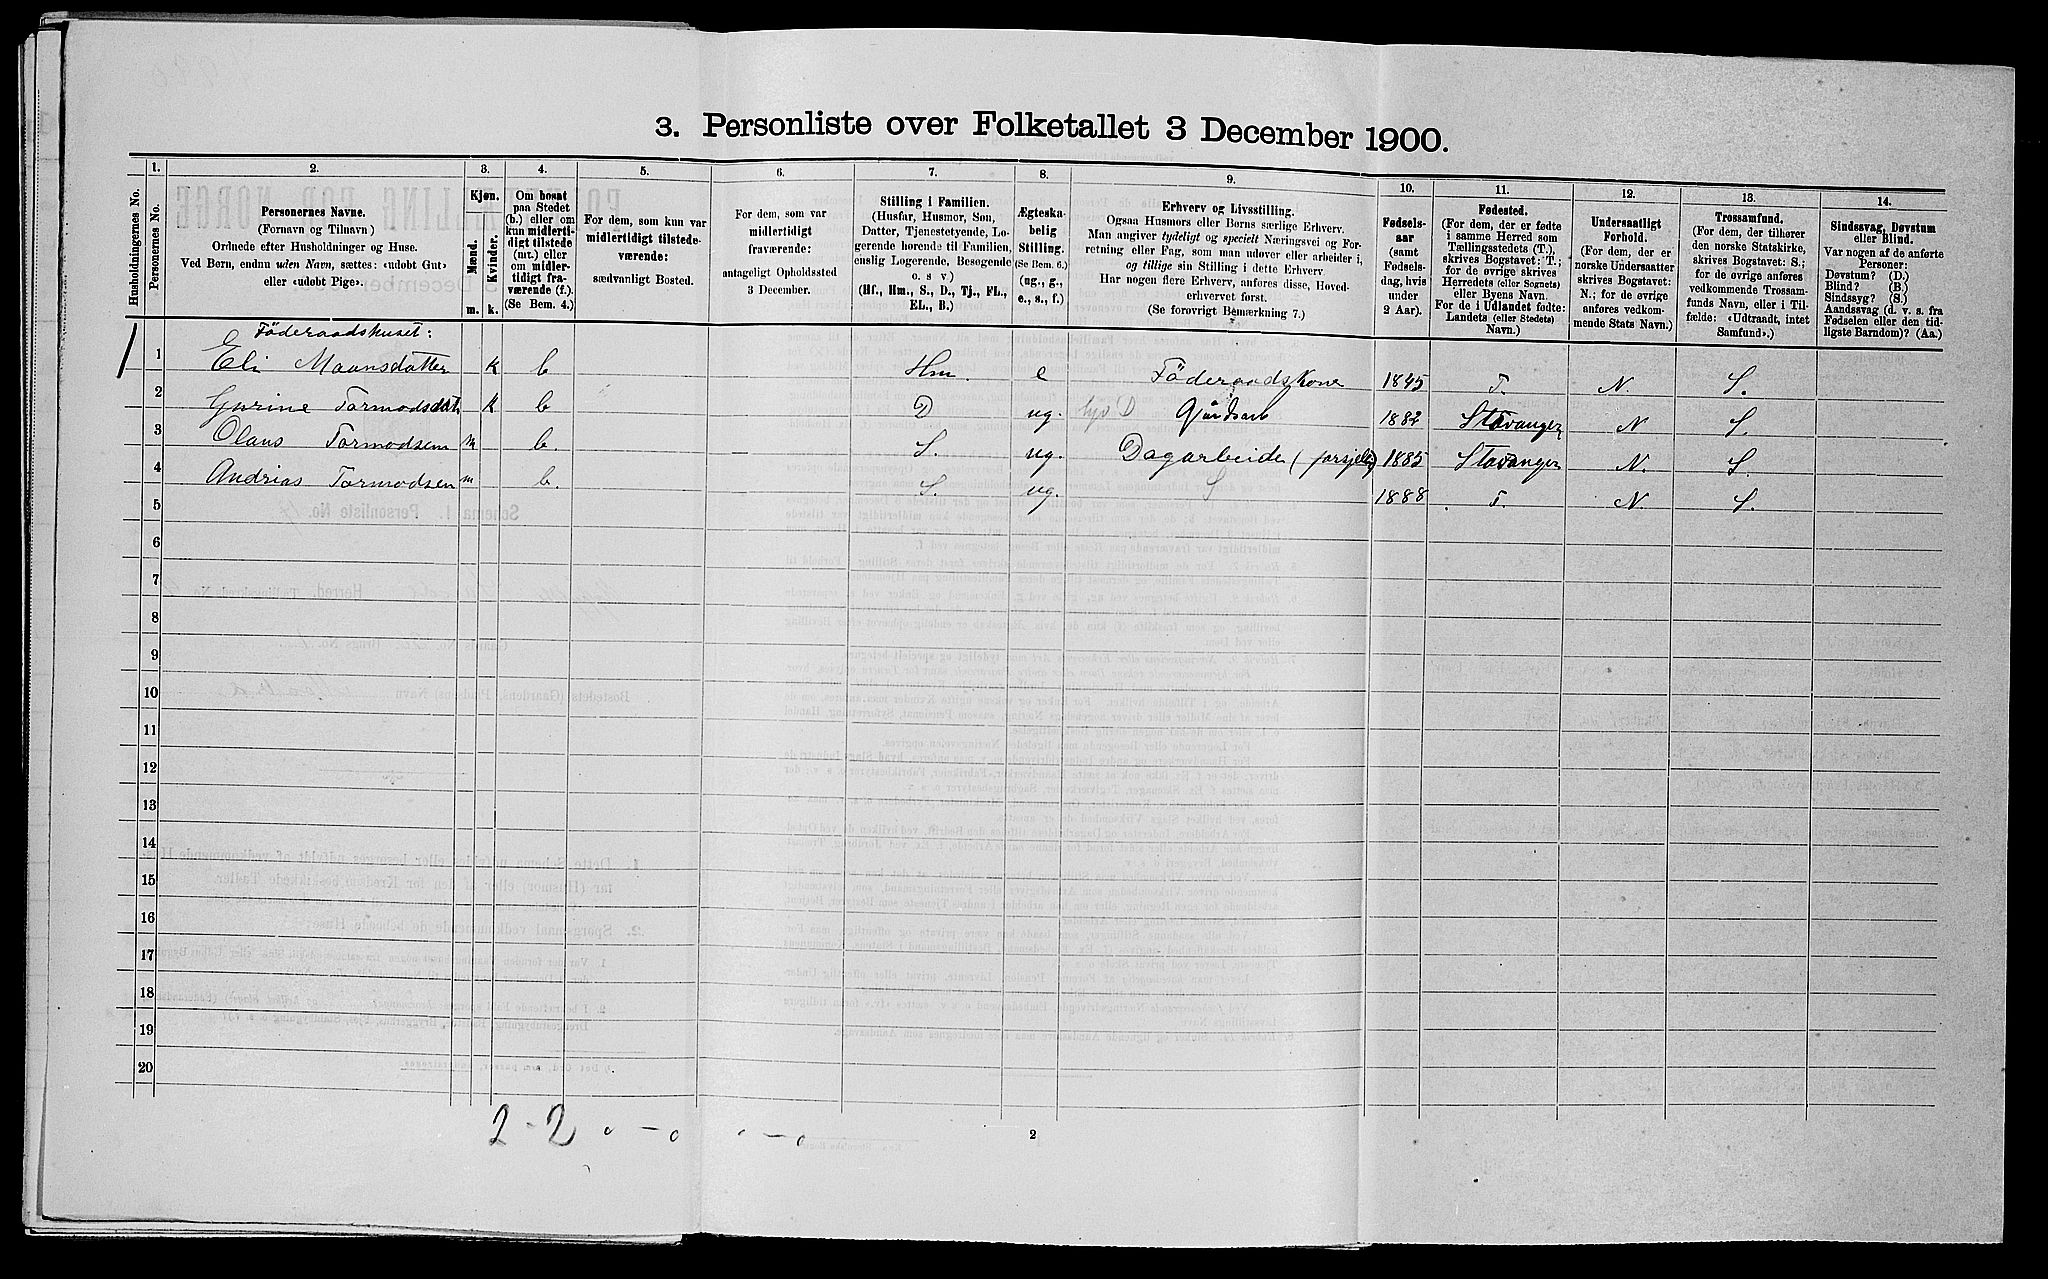 3. Personliste over Folketallet 3 December 1900.
1. 2. 3. 4. 5. 6. 7. 8. 9. 10. 11. 12. 13. 14.
Husholdningernes No.
Personernes No.
Personernes Navne.
(Fornavn og Tilnavn)
Ordnede efter Husholdninger og Huse.
Ved Børn, endnu uden Navn, sættes: «udøbt Gut»
eller «udøbt Pige».
Kjøn.
Mænd. Kvinder.
m. k.
Om bosat
paa Stedet
(b.) eller om
kun midlerti-
digt tilstede
(mt.) eller
om midler-
tidigt fra-
værende (f.).
(Se Bem. 4.)
For dem, som kun var
midlertidigt tilstede-
værende:
sædvanligt Bosted.
For dem, som var
midlertidigt
fraværende:
antageligt Opholdssted
3 December.
Stilling i Familien.
(Husfar, Husmor, Søn,
Datter, Tjenestetyende, Lo-
gerende hørende til Familien,
enslig Logerende, Besøgende
o. s. v.)
(Hf., Hm., S., D., Tj., FL.,
EL., B.)
Ægteska-
belig
Stilling.
(Se Bem. 6.)
(ug., g.,
e., s., f.)
Erhverv og Livsstilling.
Ogsaa Husmors eller Børns særlige Erhverv.
Man angiver tydeligt og specielt Næringsvei og For-
retning eller Fag, som man udøver eller arbeider i,
og tillige sin Stilling i dette Erhverv.
Har nogen flere Erhverv, anføres disse, Hoved-
erhvervet først.
(Se forøvrigt Bemærkning 7.)
Fødsels-
aar
(samt
Fødsels-
dag, hvis
under
2 Aar).
Fødested.
(For dem, der er fødte
i samme Herred som
Tællingsstedets (T.),
skrives Bogstavet: T.;
for de øvrige skrives
Herredets (eller Sognets)
eller Byens Navn.
For de i Udlandet fødte:
Landets (eller Stedets)
Navn.)
Undersaatligt
Forhold.
(For dem, der er
norske Undersaatter
skrives Bogstavet:
N.; for de øvrige
anføres vedkom-
mende Stats Navn.)
Trossamfund.
(For dem, der tilhører
den norske Statskirke,
skrives Bogstavet: S.;
for de øvrige anføres
vedkommende Trossam-
funds Navn, eller i Til-
fælde: «Udtraadt, intet
Samfund».)
Sindssvag, Døvstum
eller Blind.
Var nogen af de anførte
Personer:
Døvstum? (D.)
Blind? (B.)
Sindssyg? (S.)
Aandssvag (d. v. s. fra
Fødselen eller den tid-
ligste Barndom)? (Aa.)
Föderaadshuset:
1 Eli Maansdatter k b Hm. e Föderaadskone 1845 T. N. S.
2 Gurine Tormodsdat k b D ug. Gårdsarb 1882 Stavanger N S.
3 Olaus Tormodsen m b. S. ug. Dagarbeide 1885 Stavanger N. S.
4 Andrias Tormodsen m b. S. ug. S 1888 T. N. S.
5
6
7
8
9
10
11
12
13
14
15
16
17
18
19
20
2 - 2 0 - 0 0 - 0
2